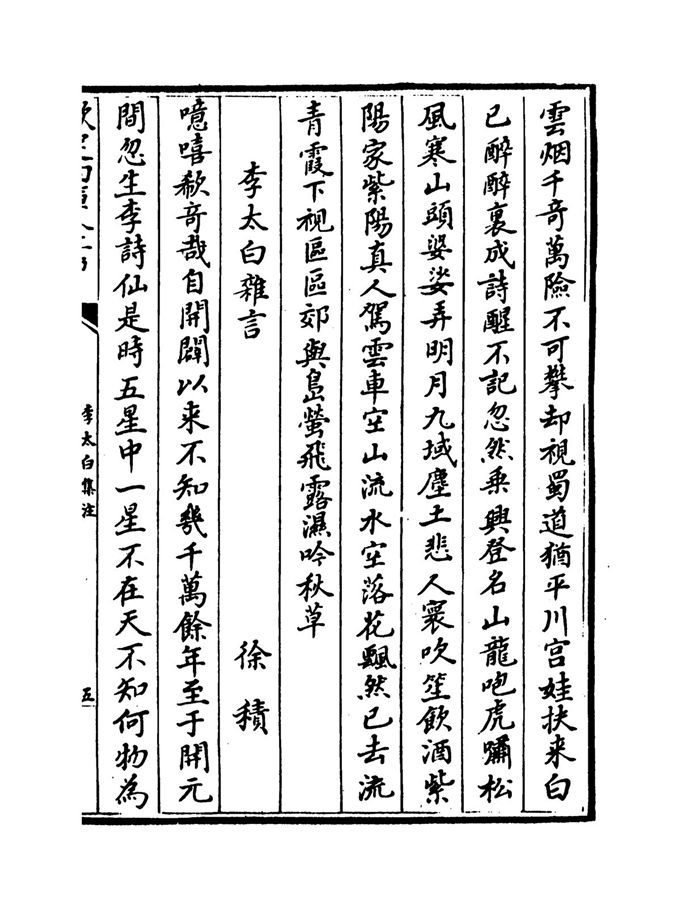 雲烟千奇萬險不可攀却視蜀道猶平川宫娃扶来白
已醉醉裏成詩醒不記忽然乗興登名山龍咆虎嘯松
風寒山頭婆娑弄明月九域塵土悲人寰吹笙飲酒紫
陽家紫陽真人駕雲車空山流水空落花飄然已去流
青霞下視區區郊與島螢飛露濕吟秋草
李太白雜言
徐積
噫嘻歑奇哉自開闢以来不知幾千萬餘年至于開元
間忽生李詩仙是時五星中一星不在天不知何物為
李太白集注
五